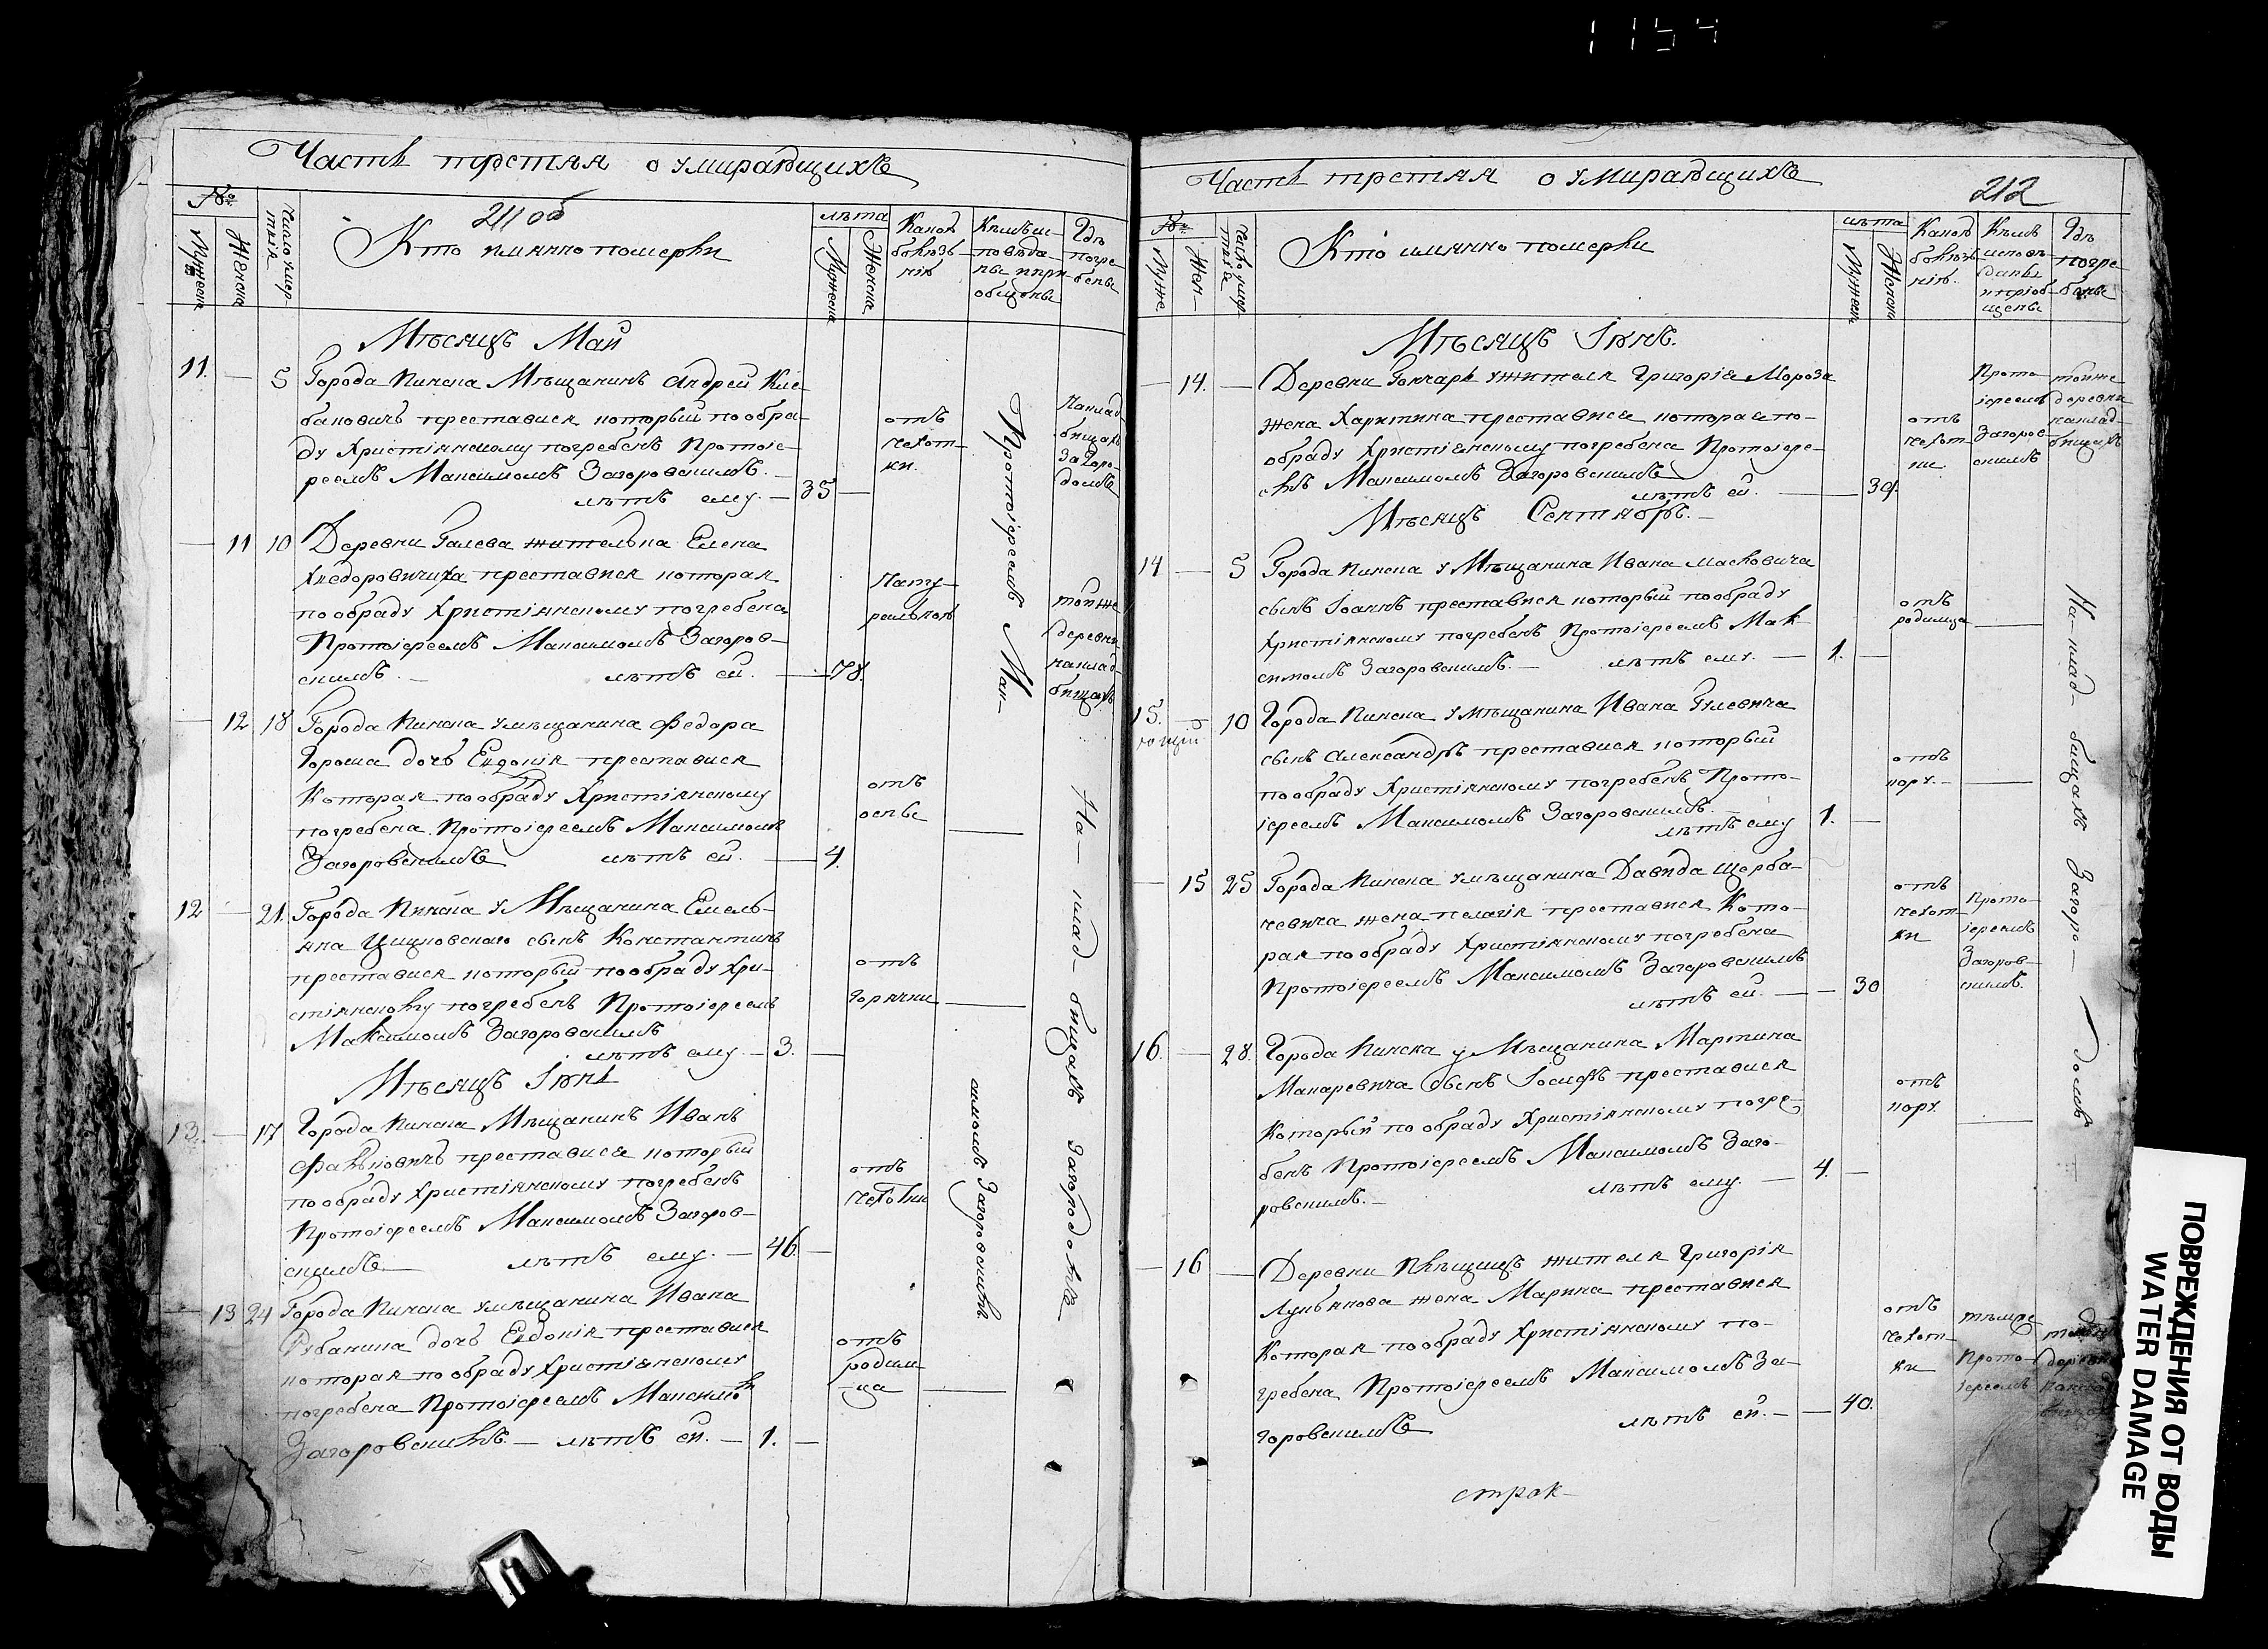 1154
Часть третяя о умирающихъ
211 об
№
Мужеска
Женска
Число умертвія
Кто имянно померли
лѣта
Мужеска
Женска
Какою
болѣзнію
Кѣмъ исповѣданы и пріобщены
Гдѣ погребены
Мѣсяцъ Маи
11. — 5 Города Пинска Мѣщанинъ Андрей Кле-
бановичъ преставися который по обра-
ду Христіянскому погребенъ Протоіе-
реемъ Максимомъ Загоровскимъ. —
лѣтъ ему. — 35 —
отъ
чехот-
ки.
На клад-
бищахъ
За горо-
домъ
— 11 10 Деревни Галева жителька Елена
Хведоровичиха преставися которая
по обраду Христіянскому погребена
Протоіереемъ Максимомъ Загоров-
скимъ. — лѣтъ ей. — 78.
Нату-
ральною
тойже
деревни
на клад-
бищахъ
— 12 18 Города Пинска у мѣщанина Федора
Гороша дочь Евдокія преставися
Которая по обраду Христіянскому
погребена Протоіереемъ Максимомъ
Загоровскимъ лѣтъ ей. — 4.
отъ
оспы
—
12 — 21. Города Пинска у Мѣщанина Емель-
яна Цицковскаго сынъ Константинъ
преставися который по обраду Хри-
стіянскому погребенъ Протоіереемъ
Максимомъ Загоровскимъ
лѣтъ ему — 3. —
отъ
горячки —
Мѣсяцъ Іюнь
13. — 17 Города Пинска Мѣщанинъ Иванъ
преставися который
по обраду Христіянскому погребенъ
Протоіереемъ Максимомъ Загоров-
скимъ. — лѣтъ ему. — 46. —
отъ
чехотки
— 13 24 Города Пинска у мѣщанина Ивана
Рубанина дочь Евдокія преставися
которая по обраду Христіянскому
погребена Протоіереемъ Максимом
Загоровскимъ. — лѣтъ ей. — 1. —
отъ
родим-
ца —
Протоіереемъ Мак-
симомъ Загоровскимъ
На — клад- бищахъ Загородомъ
Часть третяя о умирающихъ
212
№
Муже
Жен-
Число умертвія
Кто имянно померли
лѣта
Мужеск
Женск
Какою
болѣзнію.
Кѣмъ
исповѣданы
и пріоб-
щены
Гдѣ
погре-
бены
Мѣсяцъ Іюнь.
— 14. — Деревни Гончаръ у жителя Григорія Мороза
жена Харитина преставися которая по-
обраду Христіянскому погребена Протоіере-
емъ Максимомъ Загоровскимъ
лѣтъ ей. — 30.
отъ
чехот-
ки.
Прото-
іереемъ
Загоров-
скимъ
тойже
деревни
на клад-
бищахъ
Мѣсяцъ Сентябрь. —
14 — 5 Города Пинска у Мѣщанина Ивана Масковича
сынъ Іоаннъ преставися который по обраду
Христіянскому погребенъ Протоіереемъ Мак-
симомъ Загоровскимъ. — лѣтъ ему. — 1. —
отъ
родимца —
15. — 10 Города Пинска у мѣщанина Ивана Гулевича
сынъ Александръ преставися который
по обраду Христіянскому погребенъ Прото-
іереемъ Максимомъ Загоровскимъ. —
лѣтъ ему 1. —
отъ
кору. — —
— 15 25 Города Пинска у мѣщанина Давида Щерба-
чевича жена Пелагія преставися Кото-
рая по обраду Христіянскому погребена
Протоіереемъ Максимомъ Загоровскимъ
лѣтъ ей. — 30
отъ
чехот-
ки
Прото-
іереемъ
Загоров-
скимъ.
16. — 28. Города Пинска у Мѣщанина Мартина
Макаревича сынъ Іосифъ преставися
Который по обраду Христіянскому погре-
бенъ Протоіереемъ Максимомъ Заго-
ровскимъ. — лѣтъ ему. — 4. —
отъ
кору. —
— 16 — Деревни Плѣщицъ жителя Григорія
Лукьянова жена Марина преставися
Которая по обраду Христіянскому по-
гребена Протоіереемъ Максимомъ За-
горовскимъ лѣтъ ей. — 40.
отъ
чехот-
ки
тѣмже
Прото-
іереемъ
На клад- бищахъ Загоро- домъ —
ПОВРЕЖДЕНИЯ ОТ ВОДЫ
WATER DAMAGE